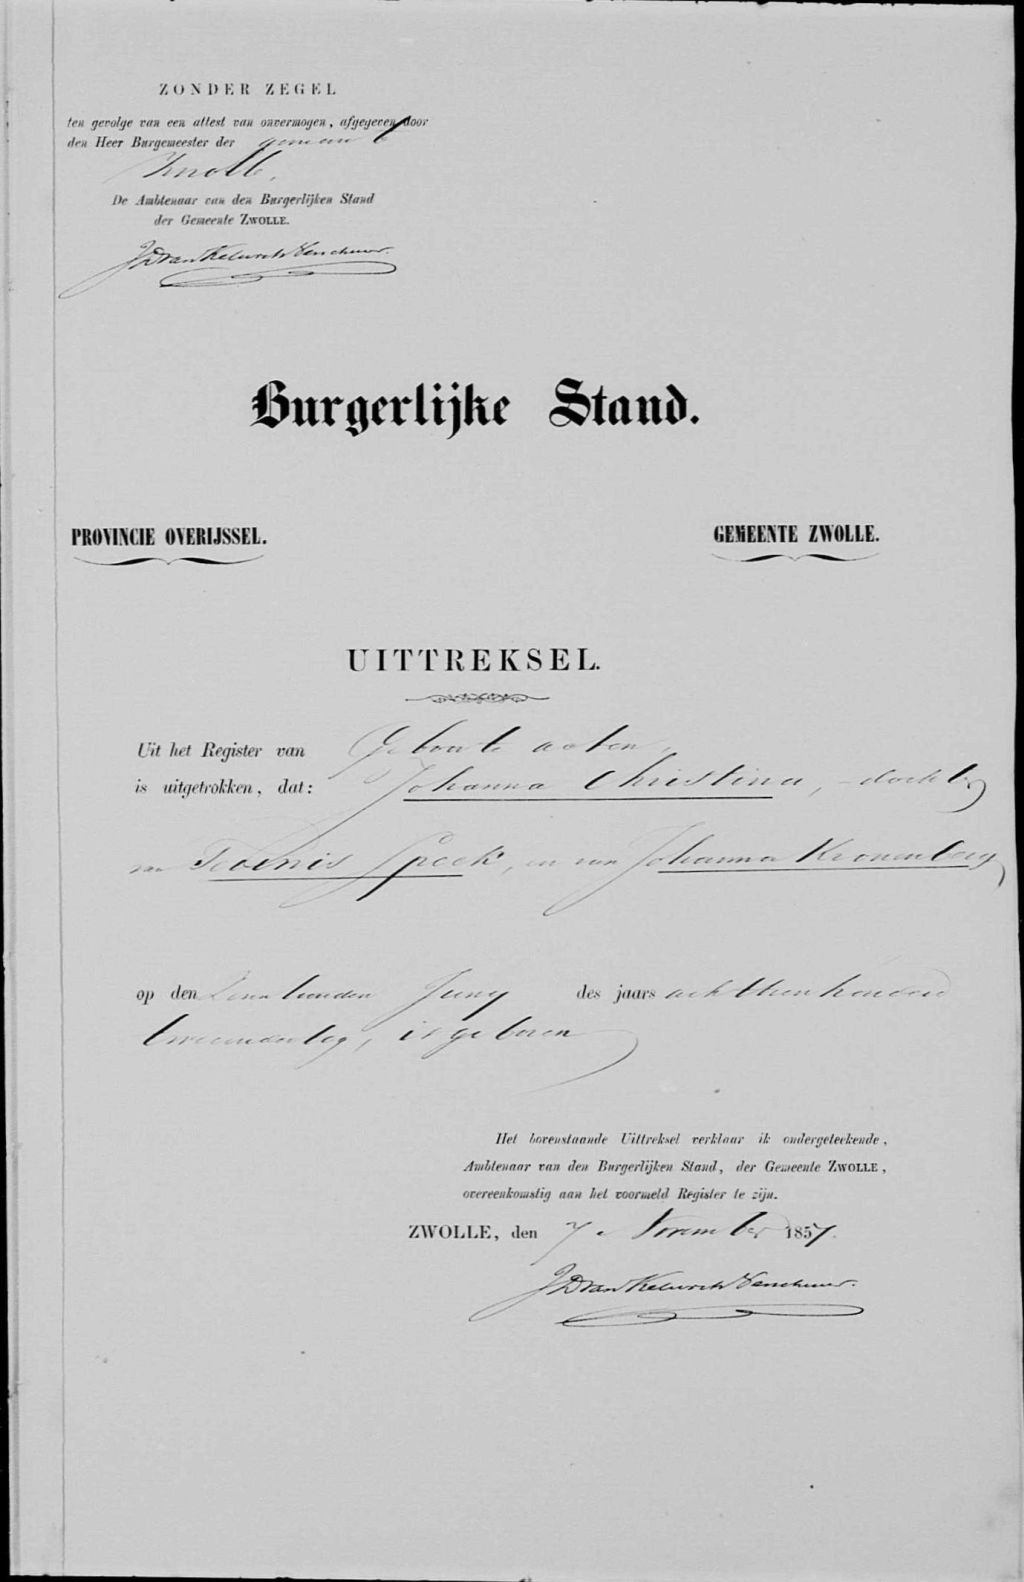 ZONDER ZEGEL
ten gevolge van een attest van onvermogen, afgegeven door
den Heer Burgemeester der gemeente
De Ambtenaar van den Burgerlijken Stand
der Gemeente ZWOLLE.
Burgerlijke Stand.
PROVINCIE OVERIJSSEL. GEMEENTE ZWOLLE.
UITTREKSEL.
Uit het Register van Geboorte acten,
is uitgetrokken, dat: Johanna Christina, dochter
van Teoenis Speek, en van Johanna Kronenberg,
op den Juny des jaars achttienhonderd
is geboren
Het bovenstaande Uittreksel verklaar ik ondergeteekende,
Ambtenaar van den Burgerlijken Stand, der Gemeente ZWOLLE,
overeenkomstig aan het voormeld Register te zijn.
ZWOLLE, den 7 November 1857.